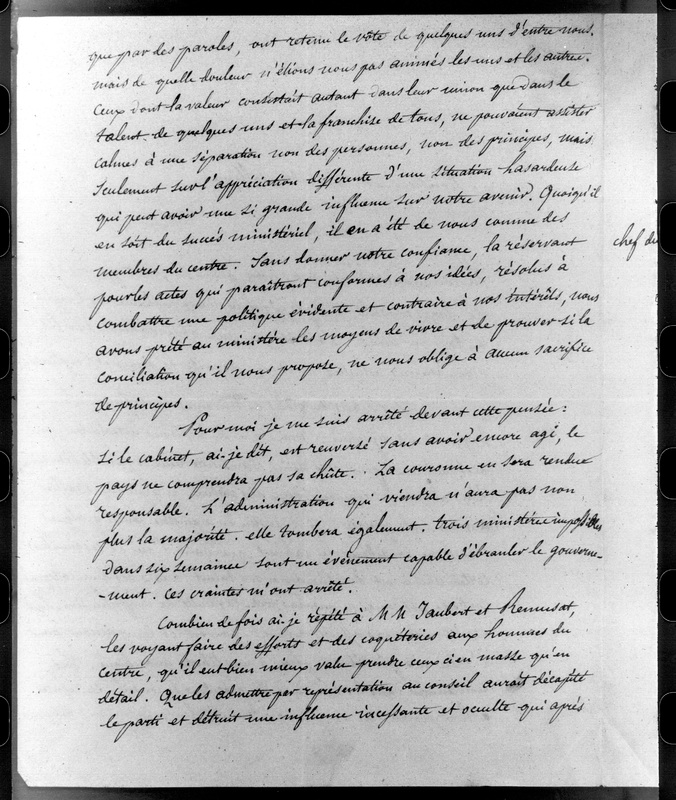 que par des paroles, ont retenu le vote de quelques uns d'entre nous.
mais de quelle douleur n'étions nous pas animés les uns et les autres.
Ceux dont la valeur consistait autant dans leur union que dans le
talent de quelques uns et la franchise de tous, ne pouvaient assister
calmes à une séparation non des personnes, non des principes, mais
seulement sur l'appréciation différente d'une situation hasardeuse
qui peut avoir une si grande influence sur notre avenir. Quoiqu'il
en soit du succès ministériel, il en a été de nous comme des
membres du centre. Sans donner notre confiance, la réservant
chef du
pour les actes qui paraîtront conformes à nos idées, résolus à
combattre une politique évidente et contraire à nos intérêts, nous
avons prêté au ministère les moyens de vivre et de prouver si la
conciliation qu'il nous propose, ne nous oblige à aucun sacrifice
de principes.
Pour moi je me suis arrêté devant cette pensée:
Si le cabinet, ai-je dit, est renversé sans avoir encore agi, le
pays ne comprendra pas sa chûte. La couronne en sera rendue
responsable. L'administration qui viendra n'aura pas non
plus la majorité. elle tombera également. trois ministères impossibles
dans six semaines sont un événement capable d'ébranler le gouverne-
-ment. Ces craintes m'ont arrêté.
Combien de fois ai-je répété à MM Jaubert et Remusat,
les voyant faire des efforts et des coquéteries aux hommes du
centre, qu'il eut bien mieux valu prendre ceux ci en masse qu'en
détail. Que les admettre par représentation au conseil aurait décapité
le parti et détruit une influence incessante et occulte qui après